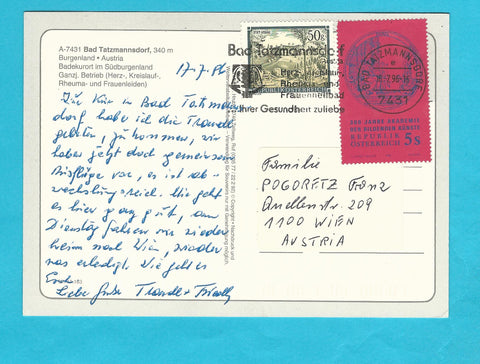 A-7431 Bad Tatzmannsdorf, 340 m
Burgenland • Austria
Badekurort im Südburgenland
Ganzj. Betrieb (Herz-, Kreislauf-,
Rheuma- und Frauenleiden)
17.7.96
Zur Kur in Bad Tatzmanns
dorf habe ich die Traudl
gebeten, zu kommen, wir
haben jetzt doch gemeinsam
Ausflüge vor, es ist ab-
wechslungsreich. Mir geht
es hier ganz gut, am
Dienstag fahren wir wieder
heim nach Wien, wieder
was erledigt. Wie geht es
Euch
Liebe Grüße Traudl +
50g
REPUBLIK ÖSTERREICH
Bad Tatzmannsdorf
Herz
Rheuma
Frauenheilbad
Ihrer Gesundheit zuliebe
BAD TATZMANNSDORF
18.-7.96-15
e
7431
300 JAHRE AKADEMIE
DER BILDENDEN KÜNSTE
REPUBLIK
ÖSTERREICH 5s
Familie
POGORETZ Franz
Quellenstr. 209
1100 WIEN
AUSTRIA